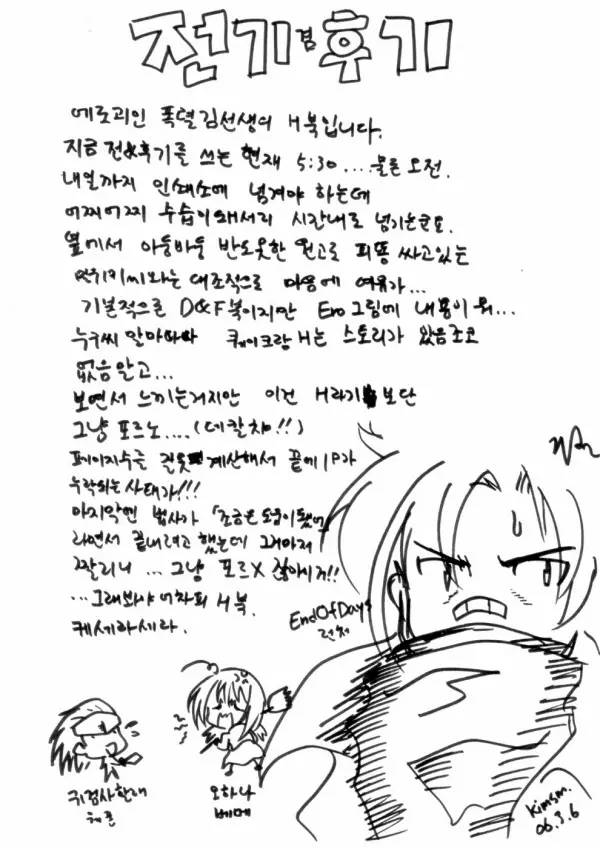 전기겸후기
에로괴인 폭렬김선생의 H북입니다.
지금 전&후기를 쓰는 현재 5:30 .... 물론 오전.
내일까지 인쇄소에 넘겨야 하는데
어찌어찌 수습이 돼서리 시간내로 넘기는군요.
옆에서 아둥바둥 반도못한 원고로 피똥 싸고있는
대조적으로 마음에 여유가...
기본적으로 D&F북이지만 Ero그림에 내용이 뭐...
누구씨 말마따나 퀘이크랑 H는 스토리가 있음 좋고
없음 말고...
보면서 느끼는거지만 이건 H라기 보단
그냥 포르노 .... (데칼챠!!)
페이지수를 잘못 계산해서 끝에 1P가
누락되는 사태가!!!
마지막엔 법사가 「조금은 도움이 됐어」
라면서 끝내려고 했는데 그마저
짤리니 ... 그냥 포르X 잖아 이거!!
... 그래봐야 어차피 H북.
케세라세라.
EndOfDays
런처
귀검사한테
오하나
베메
Kimsm.
06.3.6